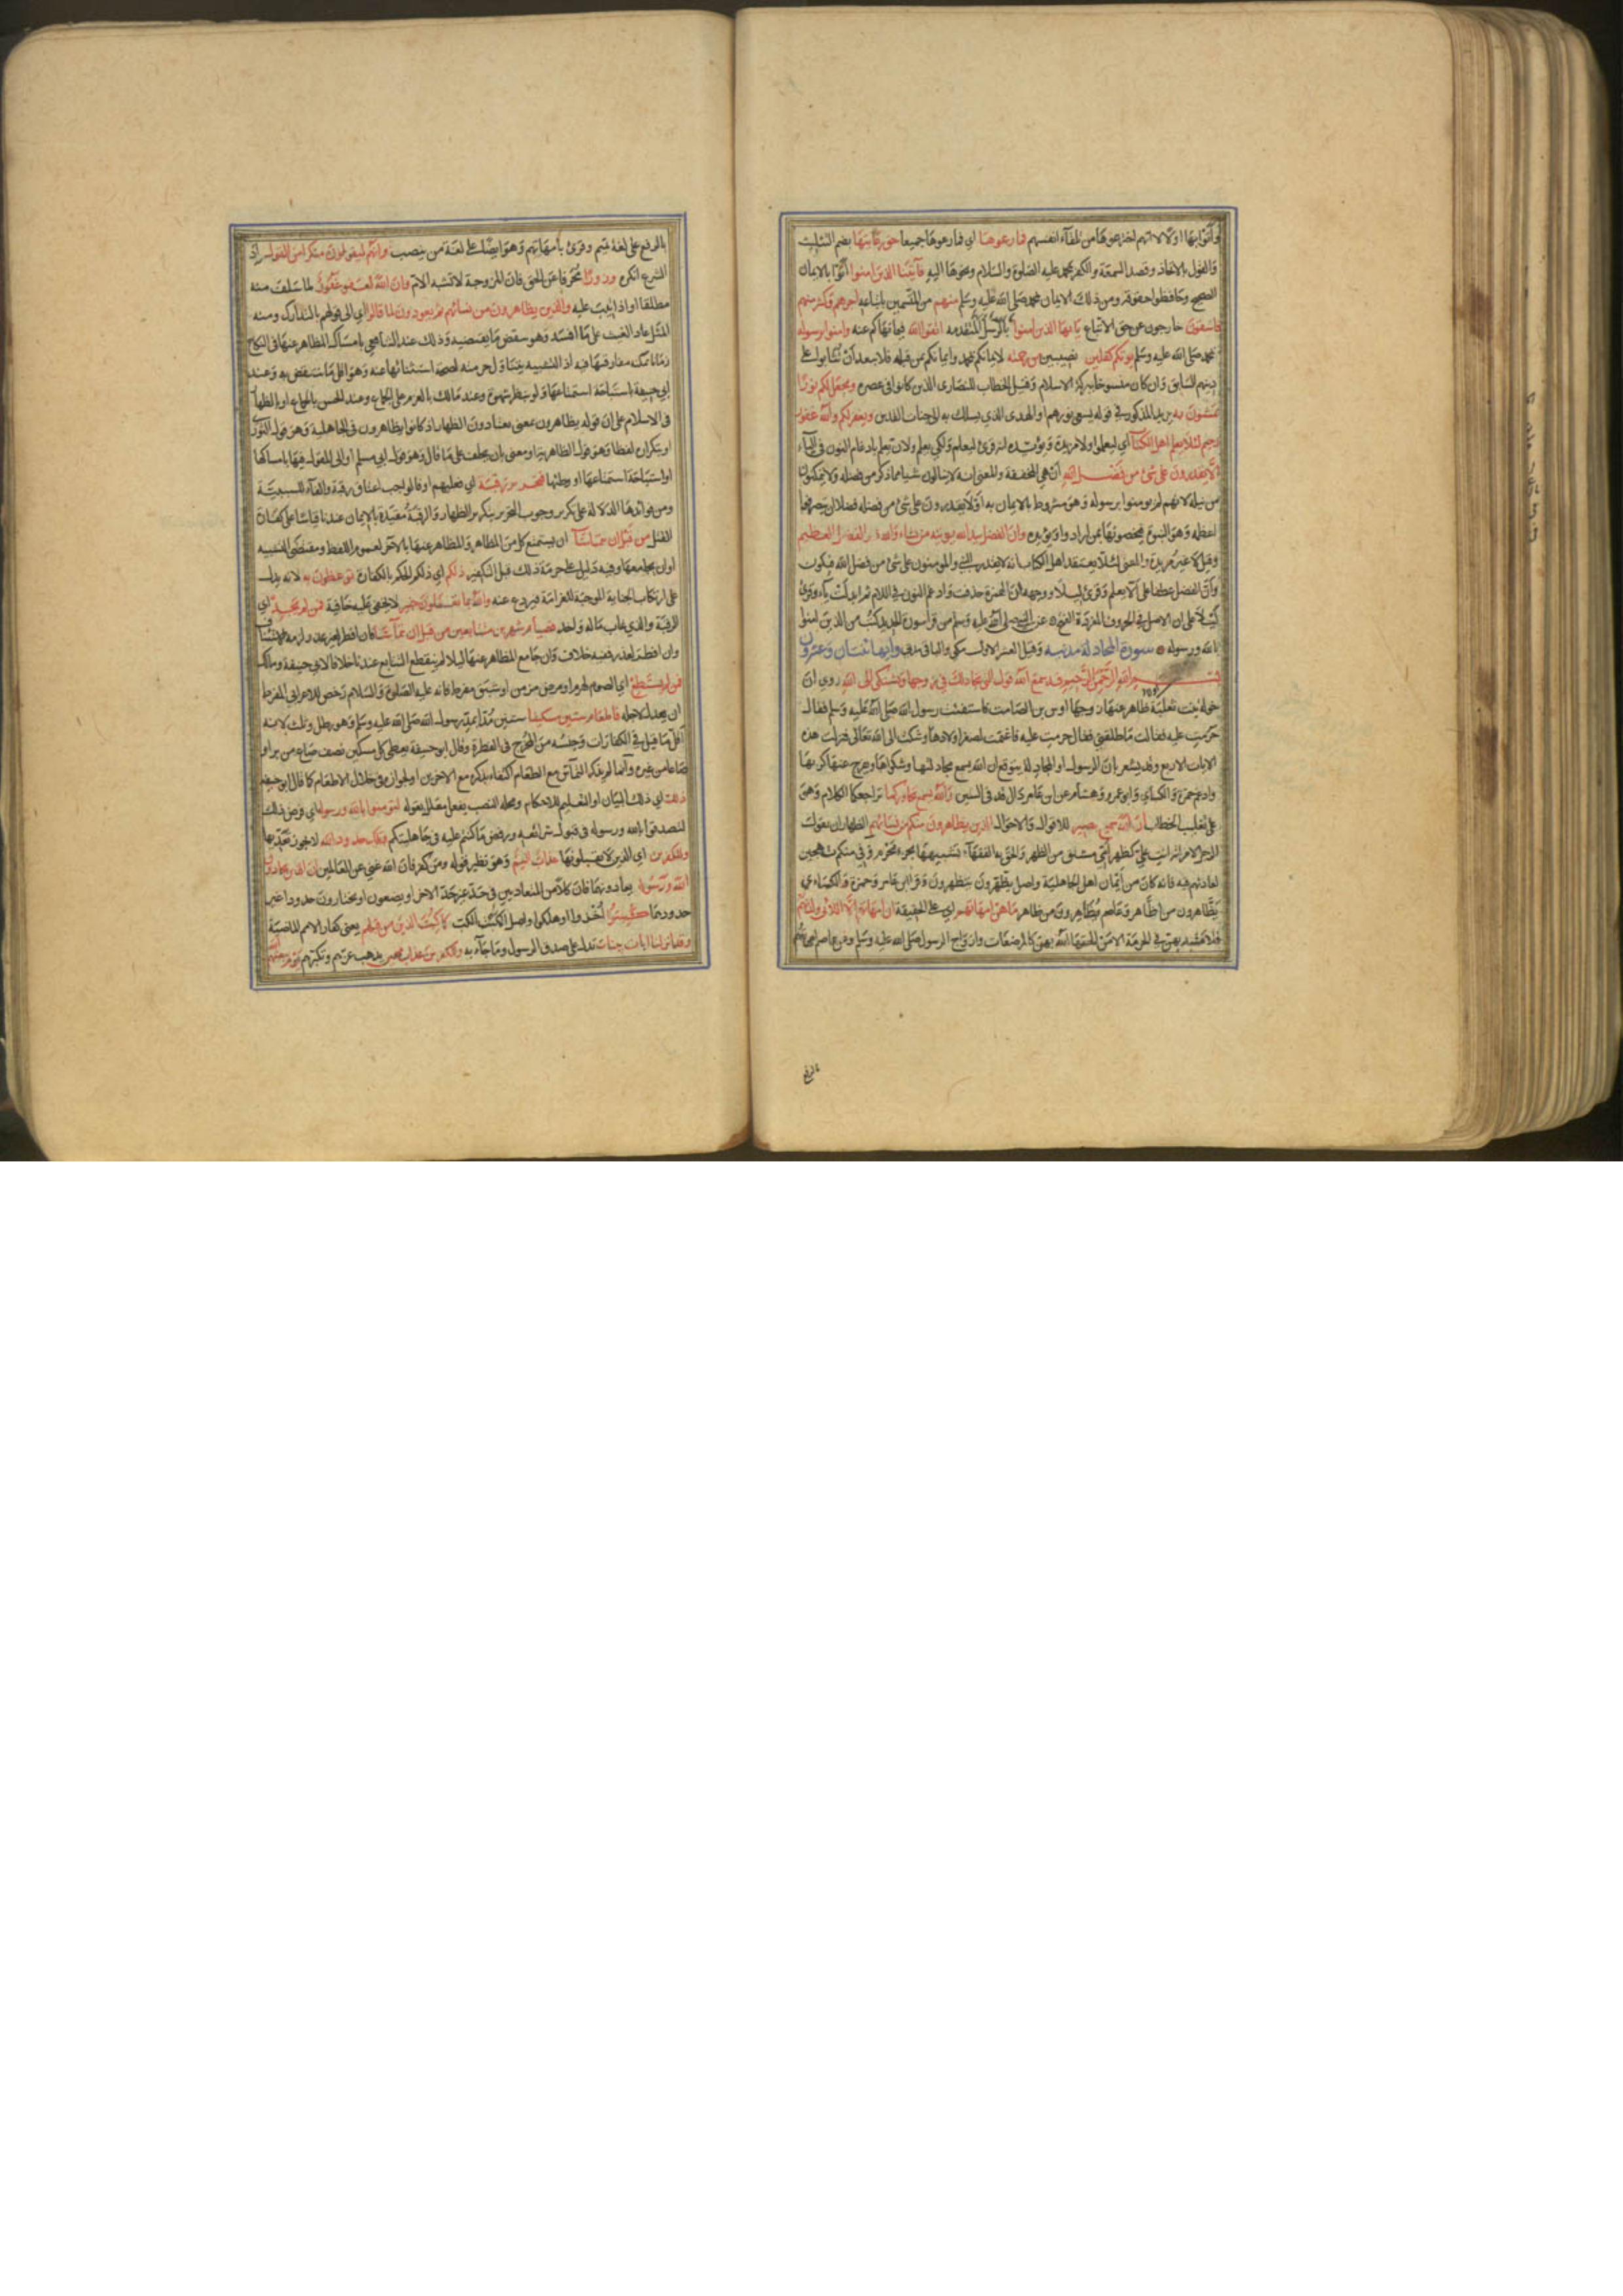 وأتوا بها أولا لأنهم اخترعوها من تلقاء أنفسهم فما رعوها أي فما رعوها جميعا حق رعايتها بضم التثليث
والقول بالاتحاد وقصد السمعة والكفر بمحمد عليه الصلوة والسلام ونحوها اليه فآتينا الذين امنوا أتوا بالايمان
الصحيح وحافظوا حقوقه ومن ذلك الايمان بمحمد صلى الله عليه وسلم منهم من المتسمين باتباعه اجرهم وكثير منهم
فاسقون خارجون عن حق الاتباع يا ايها الذين امنوا بالرسل المتقدمه اتقوا الله فيما نهاكم عنه وامنوا برسوله
محمد صلى الله عليه وسلم يوتكم كفلين نصيبين من رحمته لايمانكم بمحمد وايمانكم بمن قبله فلا يبعد أن يثابوا على
دينهم السابق وان كان منسوخا ببركة الاسلام وقيل الخطاب للنصارى الذين كانوا في عصره ويجعل لكم نورا
تمشون به يريد المذكور في قوله يسعى نورهم او الهدى الذي يسلك به الى جنات القدس ويغفر لكم والله غفور
رحيم لئلا يعلم اهل الكتاب أي ليعلموا ولا مزيدة ويؤيده انه قرئ ليعلم ولكي يعلم ولان يعلم بادغام النون في الياء
ألا يقدرون على شئ من فضل الله أن هي المخففة والمعنى انه لا ينالون شيا مما ذكر من فضله ولا يتمكنون
من نيله لانهم لم يومنوا برسوله وهو مشروط بالايمان به أو لا يقدرون على شئ من فضله فضلا ان يتصرفوا في
اعظمه وهو النبوة فيخصونها بمن ارادوا ويؤيده وان الفضل بيد الله يوتيه من يشاء والله ذو الفضل العظيم
وقيل لا غير مزيدة والمعنى لئلا يعتقد اهل الكتاب انه لا يقدر النبي والمومنون على شئ من فضل الله فيكون
وأن الفضل عطفا على ألا يعلم وقرئ ليلا ووجهه أن الهمزة حذفت وادغم النون في اللام ثم ابدلت ياء وقرئ
ليلا على ان الاصل في الحروف المفردة الفتح عن النبي صلى الله عليه وسلم من قرأ سورة الحديد كتب من الذين امنوا
بالله ورسوله سورة المجادلة مدنيه وقيل العشر الاول مكي والباقي مدني وايها اثنتان وعشرون
بسم الله الرحمن الرحيم قد سمع الله قول التي تجادلك في زوجها وتشتكي الى الله روي ان
خولة بنت ثعلبة ظاهر عنها زوجها اوس بن الصامت فاستفتت رسول الله صلى الله عليه وسلم فقال
حرمت عليه فقالت ما طلقني فقال حرمت عليه فاغتمت لصغر اولادها وشكت الى الله تعالى فنزلت هذه
الايات الاربع وقد يشعر بان الرسول او المجادلة يتوقع ان الله يسمع مجادلتها وشكواها ويفرج عنها كربها
وادغم حمزة والكسائي وابو عمرو وهشام عن ابن عامر دال قد في السين والله يسمع تحاوركما تراجعكما الكلام وهي
على تغليب الخطاب ان الله سميع بصير للاقوال والاحوال الذين يظاهرون منكم من نسائهم الظهار ان يقول
الرجل لامراته انت علي كظهر أمي مشتق من الظهر والحق به الفقهاء تشبيهها بجزء محرم وفي منكم تهجين
لعادتهم فيه فانه كان من أيمان اهل الجاهلية واصل يظهرون يتظهرون وقرا ابن عامر وحمزة والكسائي
يظاهرون من اظاهر وعاصم يظاهرون من ظاهر ما هن امهاتهم اي على الحقيقة ان امهاتهم الا اللائي ولدنهم
فلا تشبه بهن في الحرمة الا من الحقها الله بهن كالمرضعات وازواج الرسول صلى الله عليه وسلم وعن عاصم امهاتهم
بالرفع
بالرفع على لغة تميم وقرئ بأمهاتهم وهو ايضا على لغة من ينصب وانهم ليقولون منكرا من القول اذ
الشرع انكره وزورا محرفا عن الحق فان الزوجة لا تشبه الام وان الله لعفو غفور لما سلف منه
مطلقا او اذا تيب عليه والذين يظاهرون من نسائهم ثم يعودون لما قالوا اي الى قولهم بالتدارك ومنه
المثل عاد الغيث على ما افسد وهو بنقض ما يقتضيه وذلك عند الشافعي بامساك المظاهر عنها في النكاح
زمانا يمكنه مفارقتها فيه اذ التشبيه يتناول حرمته لصحة استثنائها عنه وهو اقل ما ينتقض به وعند
ابي حنيفة باستباحة استمتاعها ولو بنظرة شهوة وعند مالك بالعزم على الجماع وعند الحسن بالجماع او بالظهار
في الاسلام على ان قوله يظاهرون بمعنى يعتادون الظهار اذ كانوا يظاهرون في الجاهلية وهو قول الثوري
او بتكراره لفظا وهو قول الظاهرية او معنى بان يحلف على ما قال وهو قول ابي مسلم او الى المقول فيها بامساكها
او استباحة استمتاعها او وطئها فتحرير رقبة اي فعليهم او فالواجب اعتاق رقبة والفاء للسببية
ومن فوائدها الدلالة على تكرر وجوب التحرير بتكرر الظهار والرقبة مقيدة بالايمان عندنا قياسا على كفارة
القتل من قبل ان يتماسا ان يستمتع كل من المظاهر والمظاهر عنها بالاخر لعموم اللفظ ومقتضى التشبيه
او ان يجامعها وفيه دليل على حرمة ذلك قبل التكفير ذلكم اي ذلكم الحكم بالكفارة توعظون به لانه يدل
على ارتكاب الجناية الموجبة للغرامة فيردع عنه والله بما تعملون خبير لا يخفى عليه خافية فمن لم يجد اي
الرقبة والذي غاب ماله واجد فصيام شهرين متتابعين من قبل ان يتماسا فان افطر لغير عذر لزمه الاستيناف
وان افطر لعذر ففيه خلاف وان جامع المظاهر عنها ليلا لم ينقطع التتابع عندنا خلافا لابي حنيفة ومالك
فمن لم يستطع اي الصوم لهرم او مرض مزمن او شبق مفرط فانه عليه الصلوة والسلام رخص للاعرابي المفرط
ان يعدل لاجله فاطعام ستين مسكينا ستين مدا بمد رسول الله صلى الله عليه وسلم وهو رطل وثلث لانه
أقل ما قيل في الكفارات وجنسه من المخرج في الفطرة وقال ابو حنيفة يعطى كل مسكين نصف صاع من بر او
صاعا من غيره وانما لم يذكر التماس مع الطعام اكتفاء بذكره مع الاخرين او لجوازه في خلال الاطعام كما قال ابو حنيفة
ذلك اي ذلك البيان او التعليم للاحكام ومحله النصب بفعل معلل بقوله لتومنوا بالله ورسوله اي فرض ذلك
لتصدقوا بالله ورسوله في قبول شرائعه ورفض ما كنتم عليه في جاهليتكم وتلك حدود الله لا يجوز تعديها
وللكفرين اي الذين لا يقبلونها عذاب اليم وهو نظير قوله ومن كفر فان الله غني عن العالمين ان الذين يحادون
الله ورسوله يعادونهما فان كلا من المتعاديين في حد غير حد الاخر او يضعون او يختارون حدودا غير
حدودهما كبتوا أخذوا او هلكوا واصل الكبت الكب كما كبت الذين من قبلهم يعني كفار الامم الماضية
وقد انزلنا ايات بينات تدل على صدق الرسول وما جاء به وللكفرين عذاب مهين يذهب عزهم وتكبرهم يوم يبعثهم